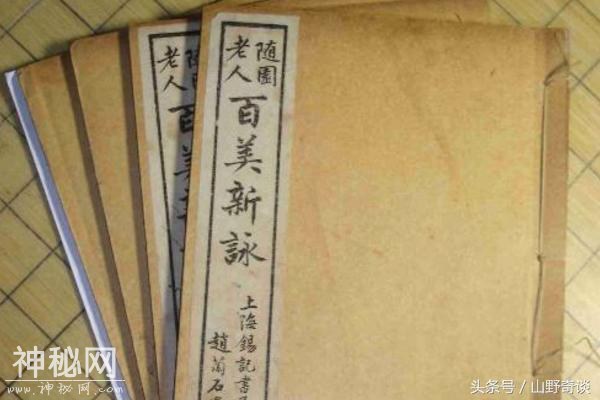 随園
老人
百美新詠
上海錫記書
趙蘭石
随園
老人
百美新
神秘网
www.神秘网.com
头条号／山野奇谈